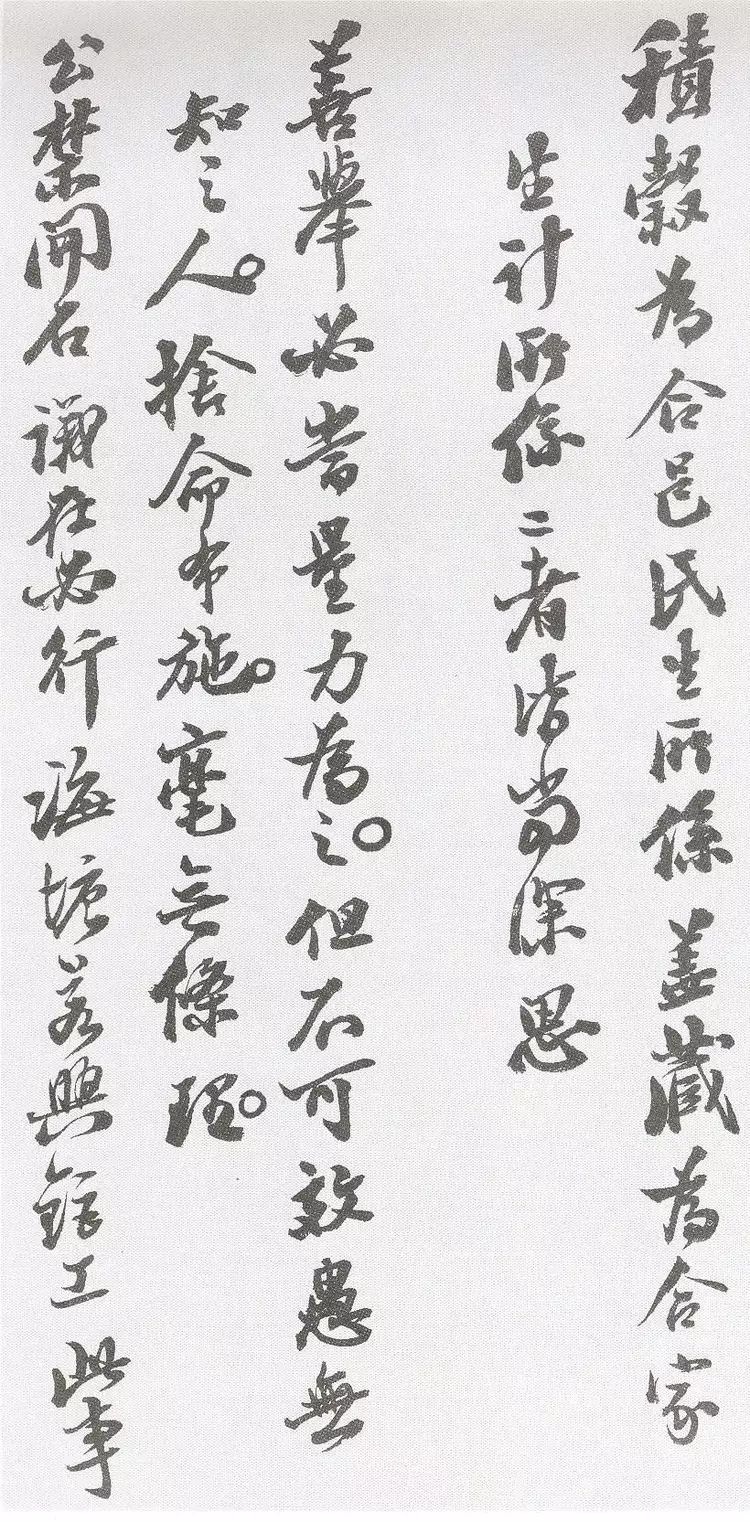 積穀為合邑民生所係蓋藏為合家
生計所係二者皆當深思
善舉必當量力為之但不可效愚無
知之人捨命布施毫無條理
公禁開石議在必行海塘若興錧工此事